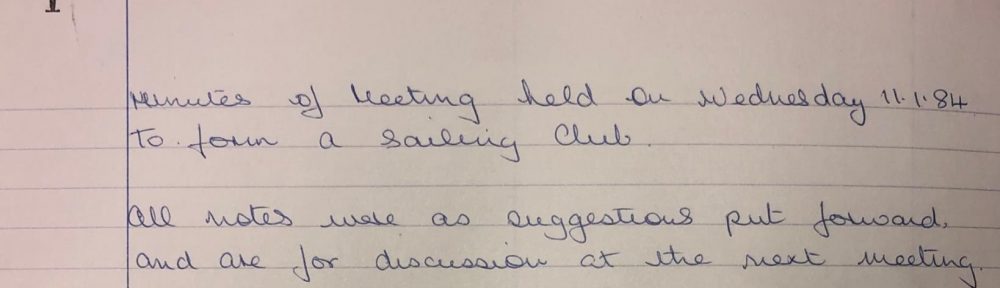 1
Minutes of Meeting held on Wednesday 11.1.84
To form a Sailing Club.
All notes were as suggestions put forward,
and are for discussion at the next meeting.